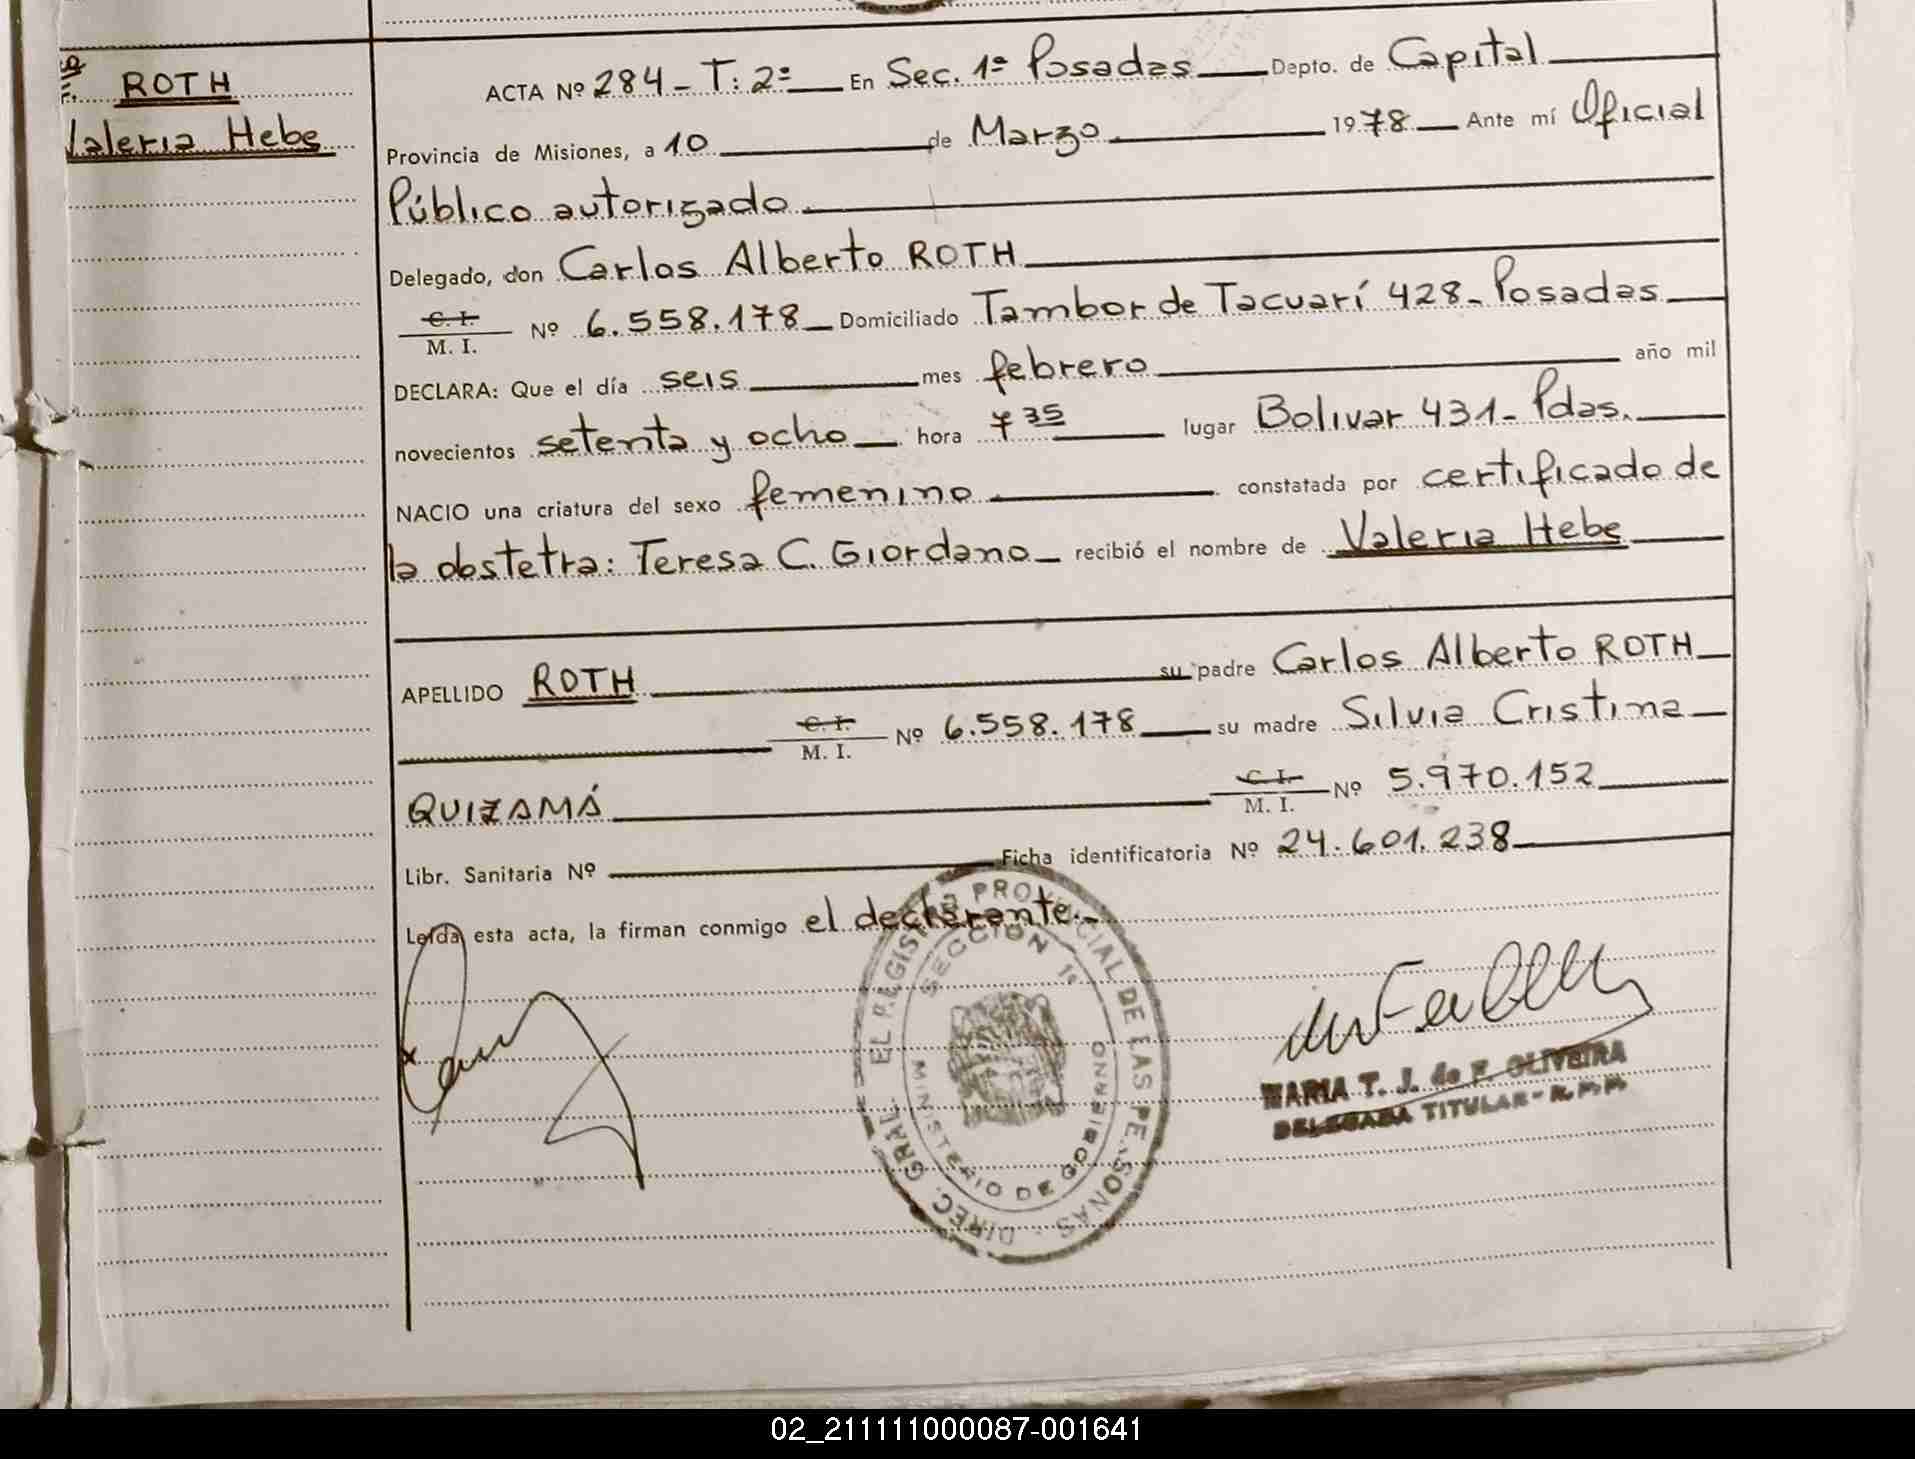 ROTH
Valeria Hebe
ACTA Nº 284 - T: 2º En Sec. 1ª Posadas Depto. de Capital
Provincia de Misiones, a 10 de Marzo 1978 Ante mí Oficial
Público autorizado
Delegado, don Carlos Alberto ROTH
C. I.
M. I. Nº 6.558.178 Domiciliado Tambor de Tacuarí 428 - Posadas
DECLARA: Que el día seis mes febrero año mil
novecientos setenta y ocho hora 7 35 lugar Bolivar 431 - Pdas.
NACIO una criatura del sexo femenino constatada por certificado de
la obstetra: Teresa C. Giordano recibió el nombre de Valeria Hebe
APELLIDO ROTH su padre Carlos Alberto ROTH
C. I.
M. I. Nº 6.558.178 su madre Silvia Cristina
QUIZAMÁ C. I.
M. I. Nº 5.970.152
Libr. Sanitaria Nº Ficha identificatoria Nº 24.601.238
Leída esta acta, la firman conmigo el declarante.-
DIREC. GRAL. EL REGISTRO PROVINCIAL DE LAS PERSONAS
SECCION 1ª
MINISTERIO DE GOBIERNO
MARIA T. J. de F. OLIVEIRA
DELEGADA TITULAR - R. P. P.
02_211111000087-001641